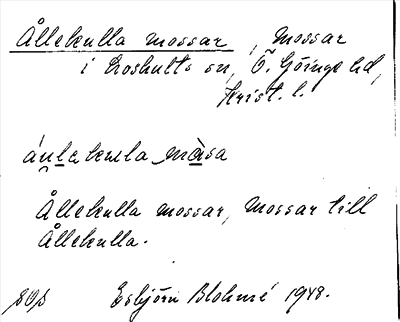 Ållekulla mossar, Mossar
i Loshults sn, Ö. Göinge hd,
Krist. l.
áulakula màsa
Ållekulla mossar, Mossar till
Ållekulla.
Esbjörn Blohmé 1948.